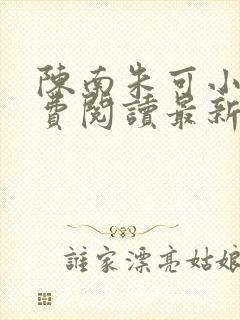 陳南朱可小
費閱讀最新
誰家漂亮姑娘